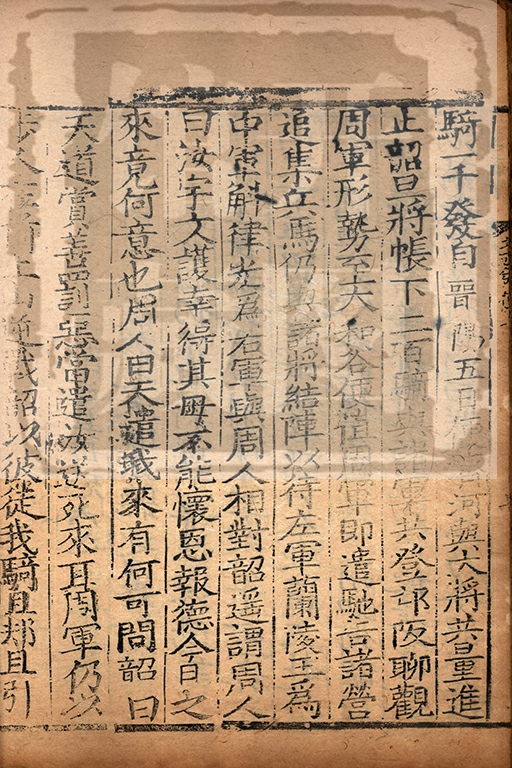 騎一千發自晉陽五日便濟河與大將共量進
止韶旦將帳下二百騎與諸軍共登邙阪聊觀
周軍形勢至大和谷便值周軍即遣馳告諸營
追集兵馬仍與諸將結陣以待左軍蘭陵王為
中軍斛律光為右軍與周人相對韶遙謂周人
曰汝宇文護幸得其母不能懷恩報德今日之
來竟何意也周人曰天遣我來有何可問韶曰
天道賞善罰惡當遣汝送死來耳周軍仍以
步人在前上山逆戰韶以彼徒我騎且却且引